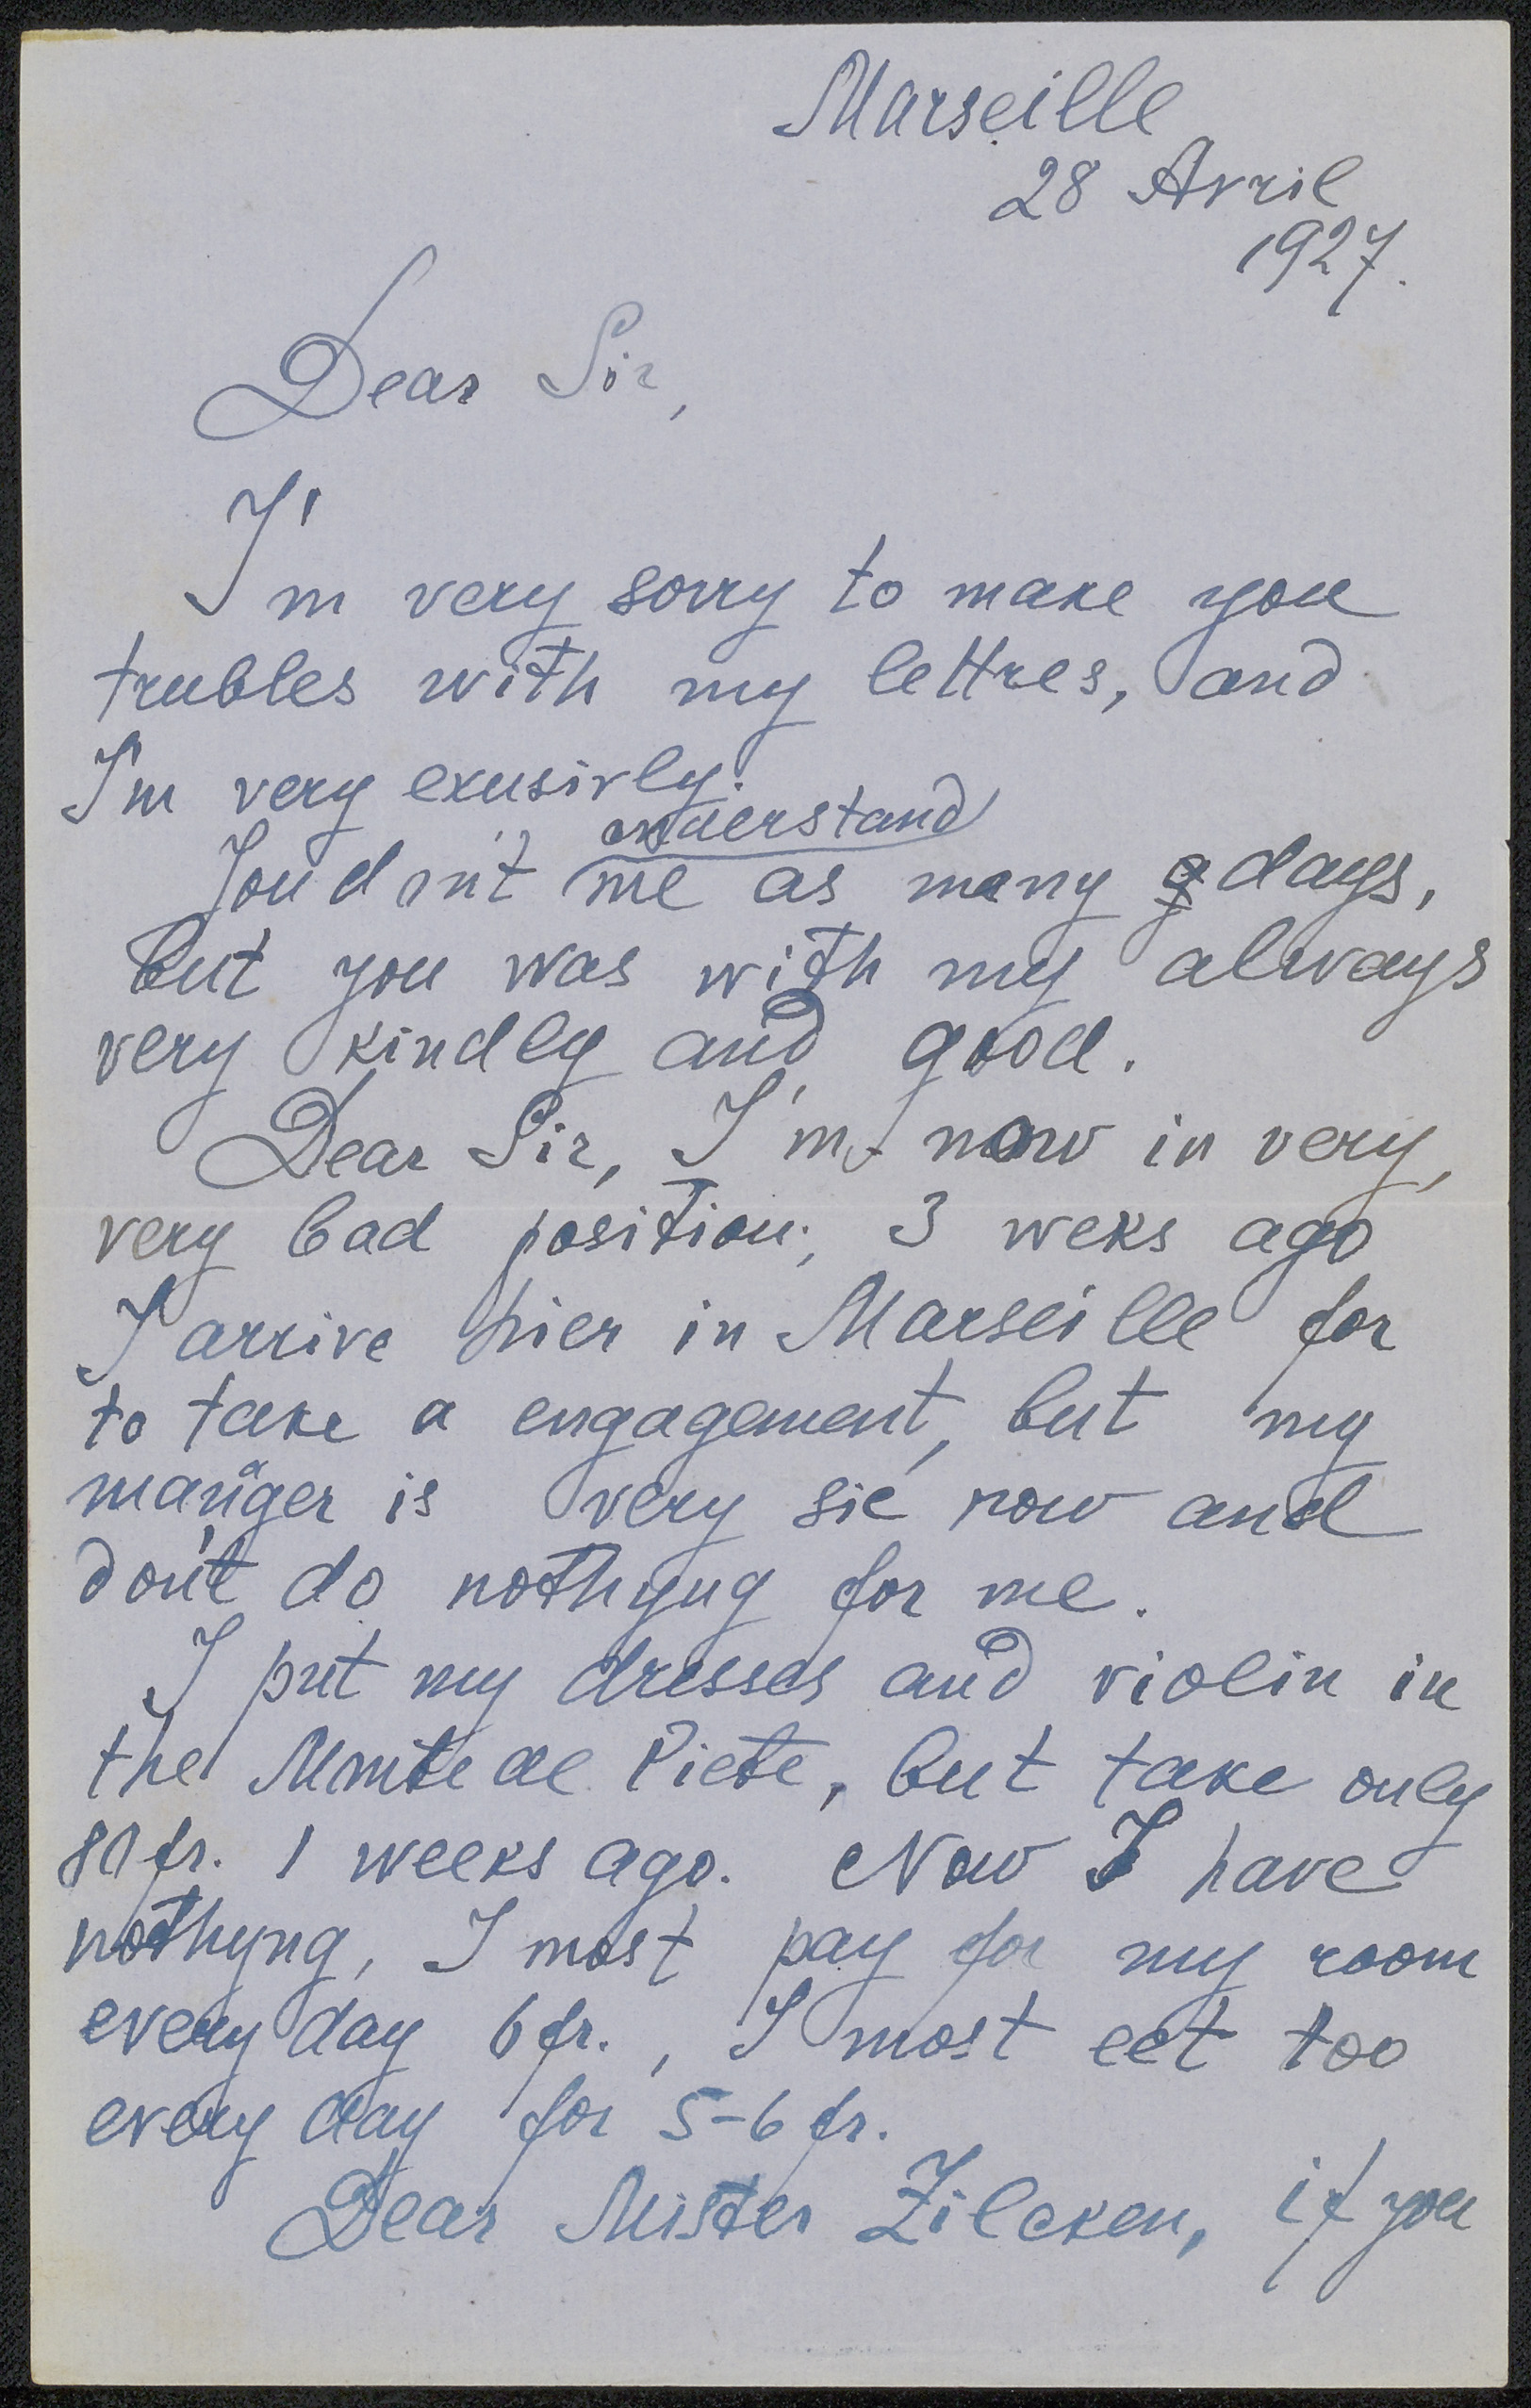 Marseille
28 Avril
1927.
Dear Sir,
I'm very sorry to make you
trubles with my lettres, and
I'm very exusivly.
understand
You don't me as many days,
but you was with my always
very kindly and good.
Dear Sir, I'm now in very,
very bad position; 3 weks ago
I arrive hier in Marseille for
to take a engagement, but my
manager is very sic now and
don't do nothyng for me.
I put my dresses and violin in
the Monte de Piete, but take only
80 fr. 1 weeks ago. Now I have
nothyng, I most pay for my room
every day 6 fr., I most eet too
every day for 5-6 fr.
Dear Mister Zilcken, if you